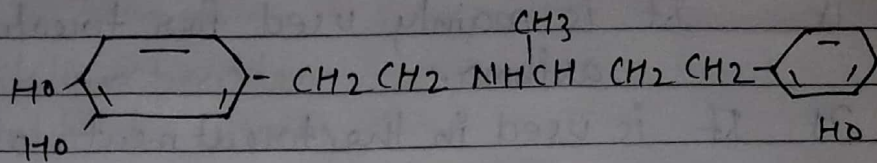 CH3
HO - CH2 CH2 NHCH CH2 CH2 -
HO HO